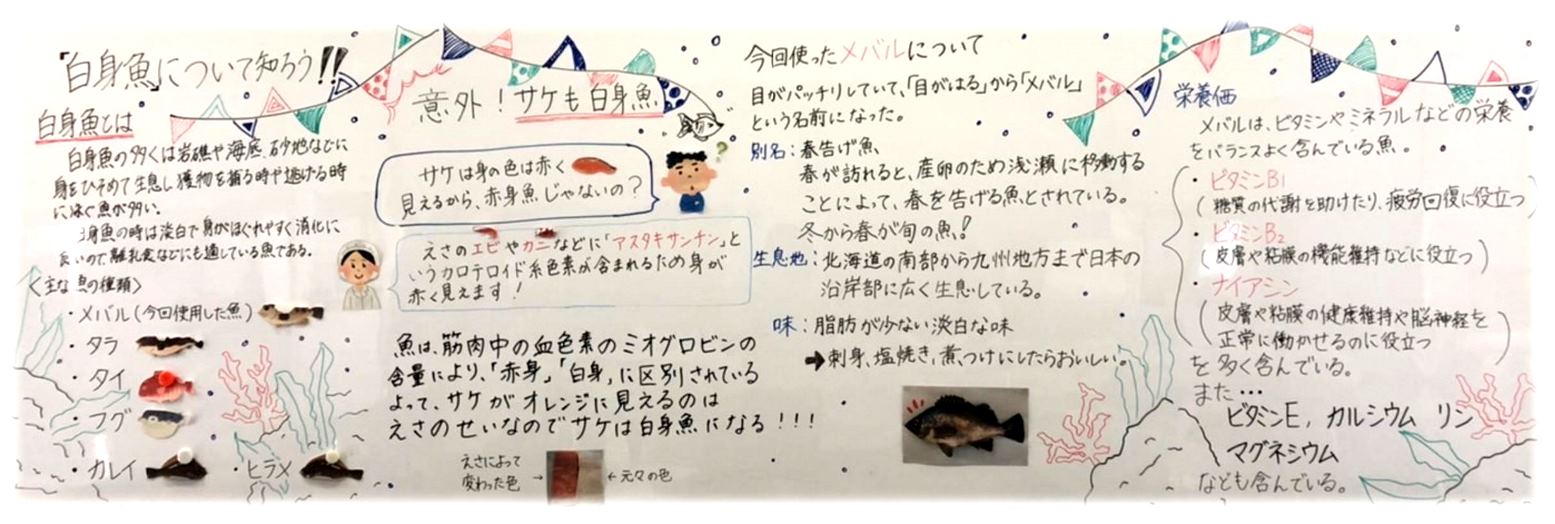 「白身魚」について知ろう!!
白身魚とは
白身魚の多くは岩礁や海底、砂地などに
身をひそめて生息し獲物を捕る時や逃げる時
に泳ぐ魚が多い。
身魚の時は淡白で身がほぐれやすく消化に
良いので離乳食などにも適している魚である。
〈主な魚の種類〉
・メバル(今回使用した魚)
・タラ
・タイ
・フグ
・カレイ ・ヒラメ
意外!サケも白身魚
サケは身の色は赤く
見えるから、赤身魚じゃないの?
えさのエビやカニなどに「アスタキサンチン」と
いうカロテロイド系色素が含まれるため身が
赤く見えます!
魚は、筋肉中の血色素のミオグロビンの
含量により、「赤身」「白身」に区別されている
よって、サケがオレンジに見えるのは
えさのせいなのでサケは白身魚になる!!!
えさによって
変わった色→
←元々の色
今回使ったメバルについて
目がパッチリしていて、「目がはる」から「メバル」
という名前になった。
別名:春告げ魚、
春が訪れると、産卵のため浅瀬に移動する
ことによって、春を告げる魚とされている。
冬から春が旬の魚!
生息地:北海道の南部から九州地方まで日本の
沿岸部に広く生息している。
味:脂肪が少ない淡白な味
➡刺身、塩焼き、煮つけにしたらおいしい。
栄養価
メバルは、ビタミンやミネラルなどの栄養
をバランスよく含んでいる魚。
・ビタミンB1
(糖質の代謝を助けたり、疲労回復に役立つ)
・ビタミンB2
(皮膚や粘膜の機能維持などに役立つ)
・ナイアシン
(皮膚や粘膜の健康維持や脳神経を
正常に働かせるのに役立つ)
を多く含んでいる。
また…
ビタミンE, カルシウム リン
マグネシウム
なども含んでいる。